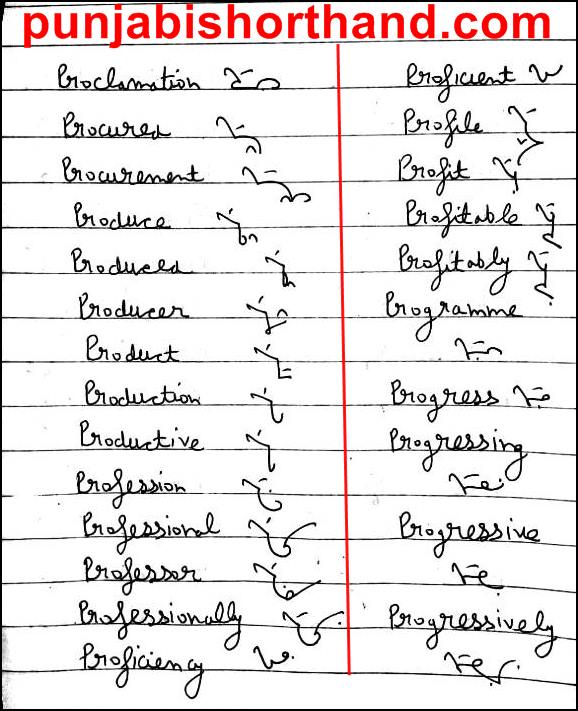 punjabishorthand.com
Proclamation
Procured
Procurement
Produce
Produced
Producer
Product
Production
Productive
Profession
Professional
Professor
Professionally
Proficiency
Proficient
Profile
Profit
Profitable
Profitably
Programme
Progress
Progressing
Progressive
Progressively